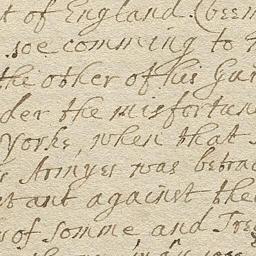 t of England. (beem
soe comming to
the other of his Gu
der the misfortun
Yorke, when that
Armyes was betra
tant against the
of somme, and Tre